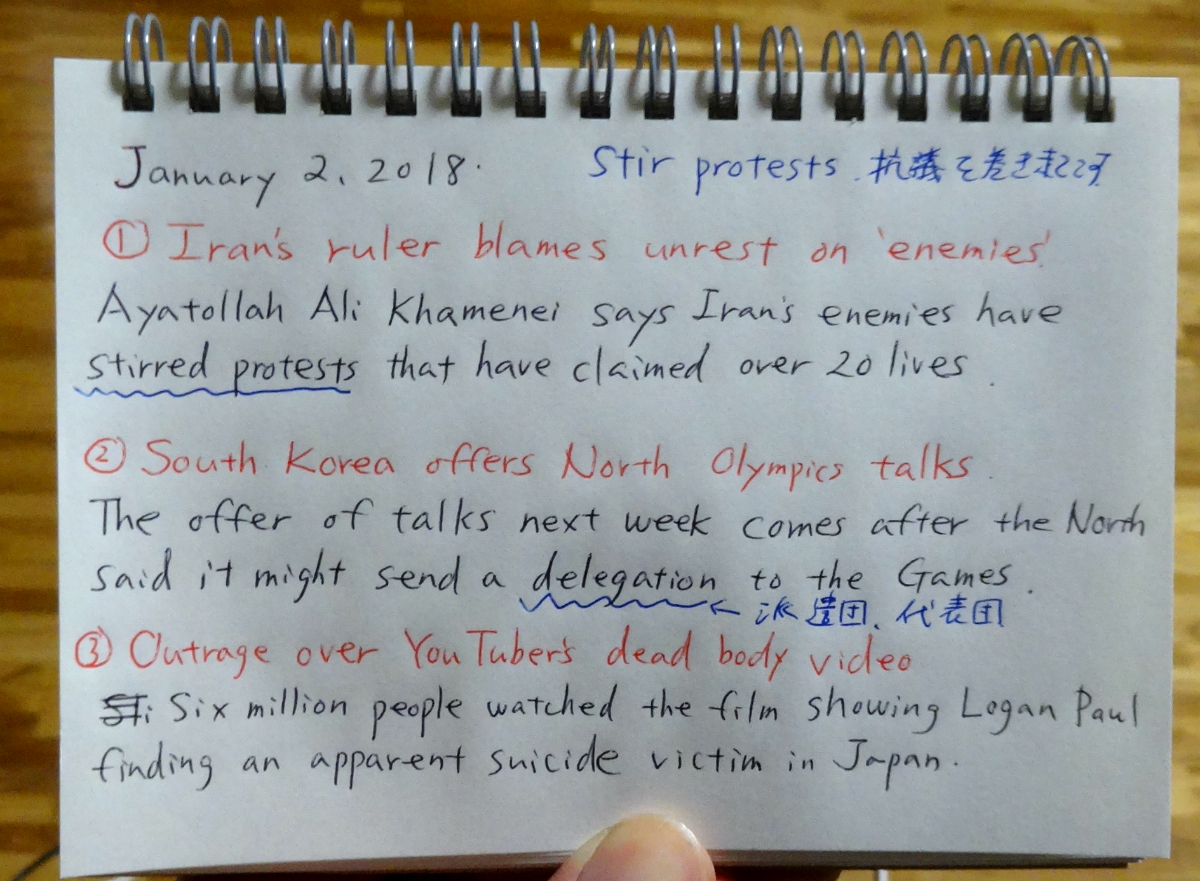 January 2, 2018. Stir protests. 抗議を巻き起こす
① Iran's ruler blames unrest on 'enemies'
Ayatollah Ali Khamenei says Iran's enemies have
stirred protests that have claimed over 20 lives.
② South Korea offers North Olympics talks.
The offer of talks next week comes after the North
said it might send a delegation to the Games.
← 派遣団、代表団
③ Outrage over YouTuber's dead body video
Six million people watched the film showing Logan Paul
finding an apparent suicide victim in Japan.